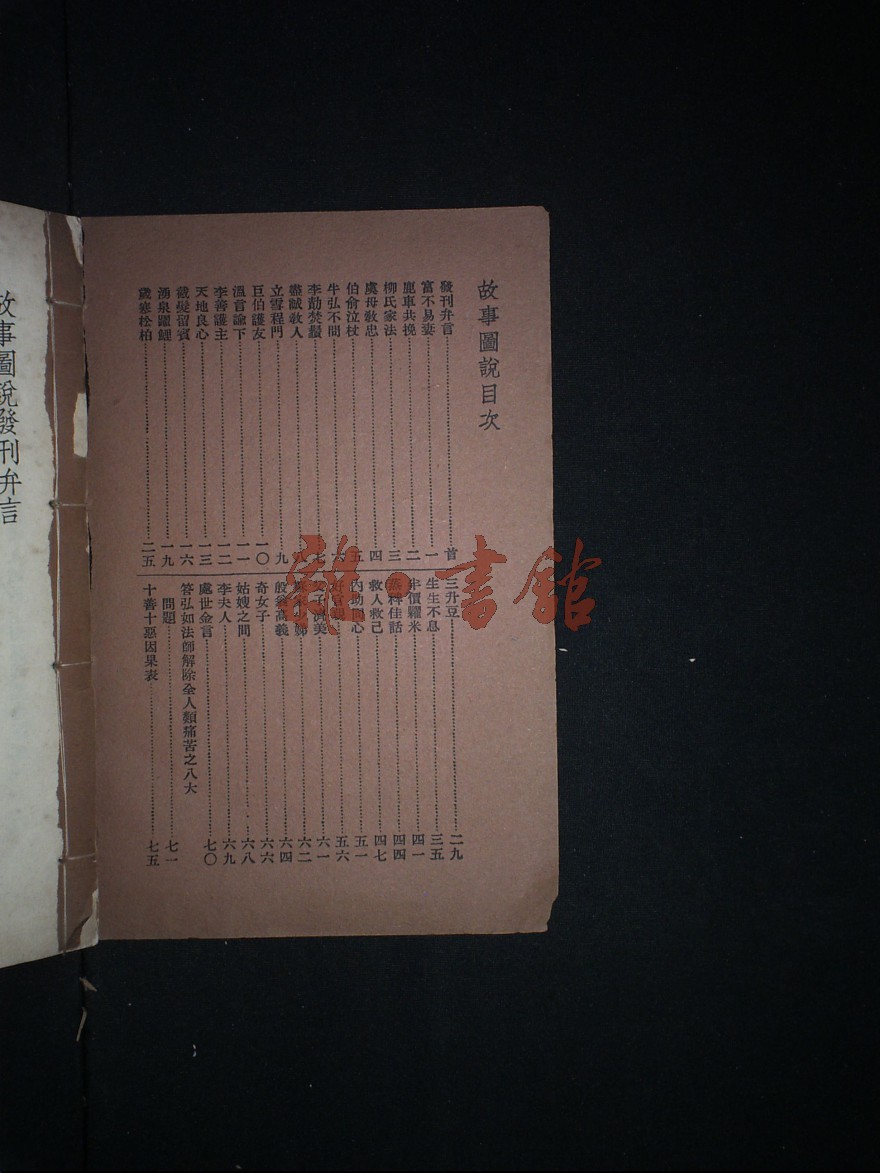 故事圖說目次
發刊弁言 首
富不易妻 一
鹿車共挽 二
柳氏家法 三
虞母敎忠 四
伯俞泣杖 五
牛弘不問 六
李勣焚鬚 七
盡誠敬人 八
立雪程門 九
巨伯護友 一〇
溫言諭下 一一
李善護主 一二
天地良心 一三
截髮留賓 一六
湧泉躍鯉 一九
歲寒松柏 二五
三升豆 二九
生生不息 三五
半價糶米 四一
佳話 四四
救人救己 四七
內助同心 五一
好官 五六
父子濟美 六一
姊 六二
殷翁高義 六四
奇女子 六六
姑嫂之間 六八
李夫人 六九
處世金言 七〇
答弘如法師解除全人類痛苦之八大
問題 七一
十善十惡因果表 七五
故事圖說發刊弁言
雜·書館